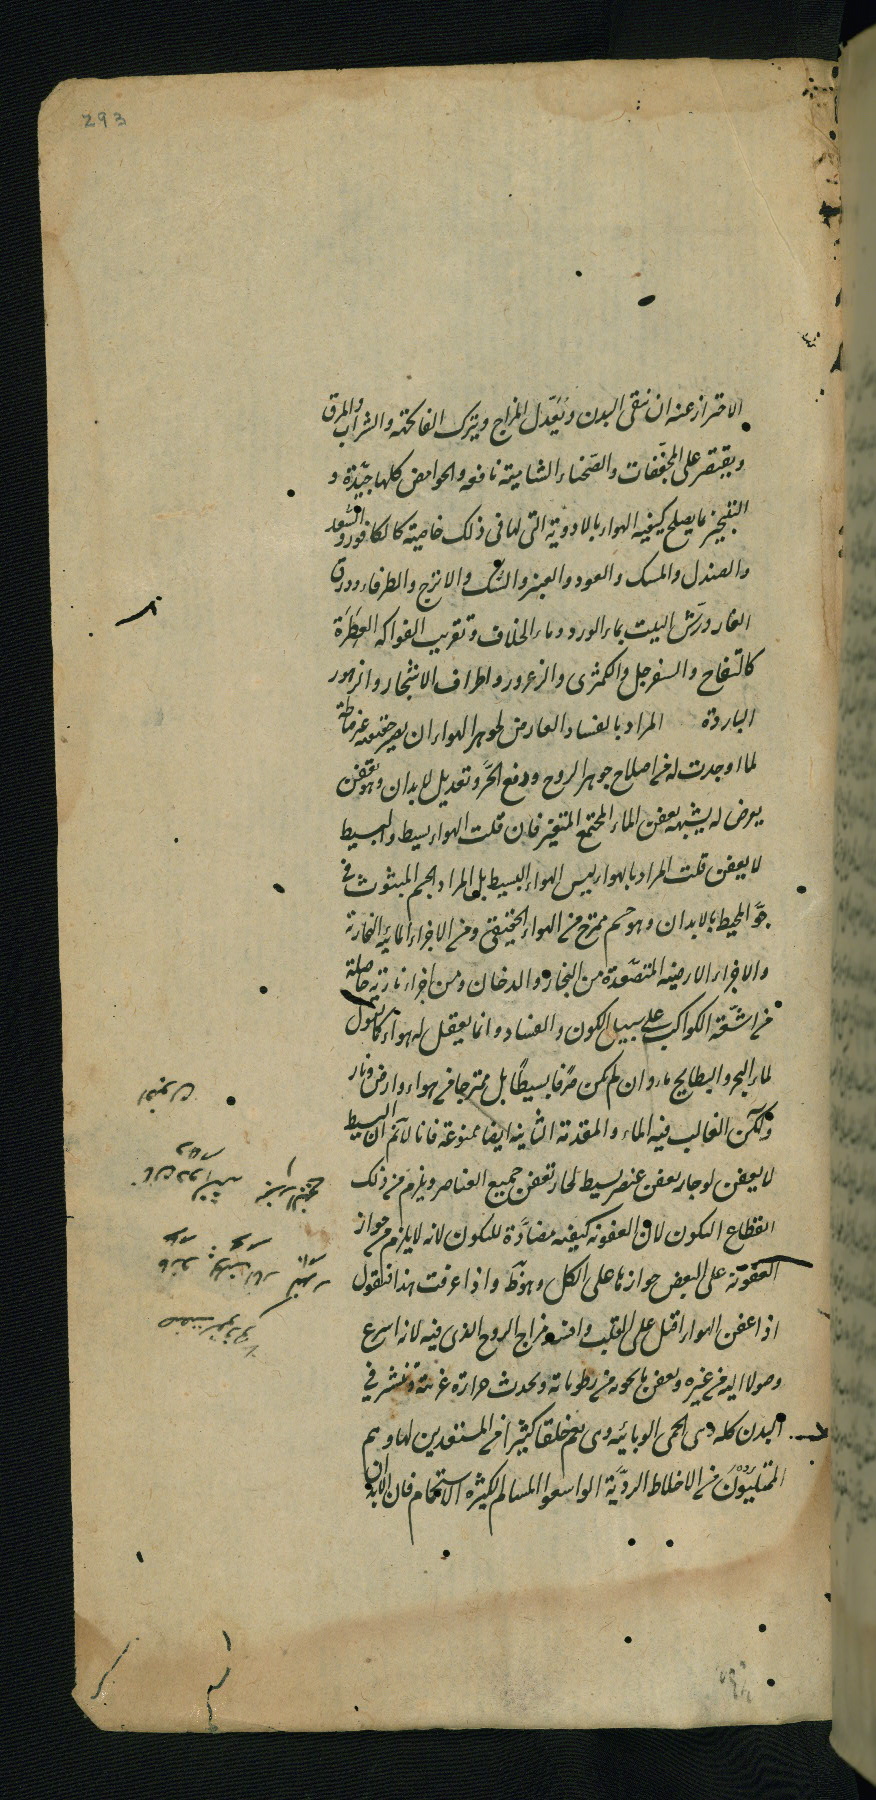 293
الاحتراز عنه ان ينقى البدن ويعَدّل المزاج ويترك الفاكهة والشراب والمرق
ويقتصر على المجفّفات والصَحناء الشامية نافعه والحوامض كلها جيّدة و
التبخير بما يصلح كيفية الهواء بالادوية التى لها فى ذلك خاصية كالكافور والسُعد
والصندل والمسك والعود والعنبر والسُّك والاترج والطرفاء وورق
الغار ورَش البيت بماء الورد وماء الخلاف وتقريب الفواكه العطرَة
كالتفاح والسفرجل والكمثرى والزعرور واطراف الاشجار والزهور
الباردة المراد بالفساد العارض لجوهر الهواء ان يصير حقيقته غير صالحة
لما اوجدت له من اصلاح جوهر الروح ودفع الحَرّ وتعديل الابدان وهو تعفن
يعرض له يشبه تعفن الماء المجتمع المتغيّر فان قلت الهواء بسيط والبسيط
لا يعفن قلت المراد بالهواء ليس الهواء البسيط بل المراد الجسم المبثوث فى
جوّ المحيط بالابدان وهو جسم ممتزج من الهواء الحقيقى ومن الاجزاء المائية البخارية
والاجزاء الارضيه المتصعّدة من البخار والدخان ومن اجزاء نارية حاصلة
من اشعّة الكواكب على سبيل الكون والفساد وانما يعقل له هواء كما نقول
لماء البحر والبطايح ماء وان لم يكن صرفا بسيطًا بل ممتزجا من هواء وارض ونار
ولكن الغالب فيه الماء والمقدمة الثانيه ايضا ممنوعة فانا لا نم ان البسيط
لا يعفن لو جاز تعفن عنصر بسيط لجاز تعفن جميع العناصر ويلزم من ذلك
انقطاع الكون لان العفونه كيفيه مضادَّة للكون لانه لا يلزم من جواز
العفونة على البعض جوازها على الكل وهو ظ واذا عرفت هذا فنقول
اذا عفن الهواء اقبل على القلب وافسد مزاج الروح الذى فيه لانه اسرع
وصولا اليه من غيره وتعفن ما يحويه من رطوباته ويحدث حرارة غريبة وتنتشر فى
البدن كله وهى الحمى الوبائيه وهى تعم خلقا كثيرا من المستعدين لها وهم
الممتليؤن من الاخلاط الرديّة الواسعوا المسام الكثيره الاستحمام فان الابدان